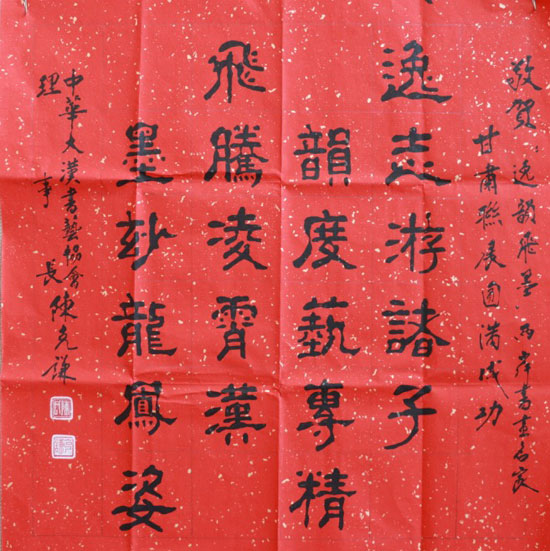 敬賀：逸韻飛墨·两岸書画名家
甘肅聯展圓满成功
逸志游諸子
韻度蓺專精
飛騰凌霄漢
墨玅龍鳳姿
中華大漢書藝協會
理事長陳克謙